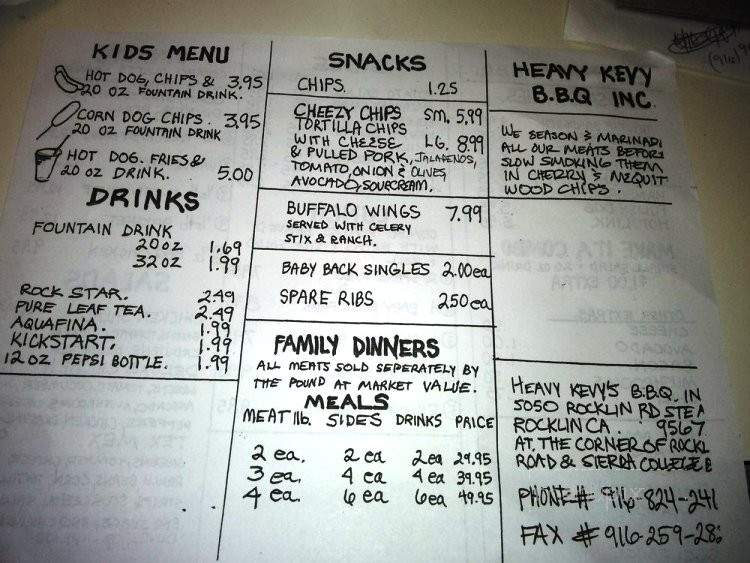 KIDS MENU
HOT DOG, CHIPS & 3.95
20 OZ FOUNTAIN DRINK.
CORN DOG CHIPS. 3.95
20 OZ FOUNTAIN DRINK
HOT DOG. FRIES &
20 OZ DRINK. 5.00
DRINKS
FOUNTAIN DRINK
20 OZ 1.69
32 OZ 1.99
ROCK STAR. 2.49
PURE LEAF TEA. 2.49
AQUAFINA. 1.99
KICKSTART. 1.99
12 OZ PEPSI BOTTLE. 1.99
SNACKS
CHIPS. 1.25
CHEEZY CHIPS SM. 5.99
TORTILLA CHIPS
WITH CHEESE LG. 8.99
& PULLED PORK, JALAPENOS,
TOMATO, ONION & OLIVES,
AVOCADO, SOURCREAM.
BUFFALO WINGS 7.99
SERVED WITH CELERY
STIX & RANCH.
BABY BACK SINGLES 2.00ea
SPARE RIBS 2.50ea
FAMILY DINNERS
ALL MEATS SOLD SEPERATELY BY
THE POUND AT MARKET VALUE.
MEALS
MEAT lb. SIDES DRINKS PRICE
2 ea. 2 ea 2ea 29.95
3 ea. 4 ea 4ea 39.95
4 ea. 6 ea 6ea 49.95
HEAVY KEVY
B.B.Q INC.
WE SEASON & MARINADE
ALL OUR MEATS BEFORE
SLOW SMOKING THEM
IN CHERRY & MEQUIT
WOOD CHIPS.
HEAVY KEVY'S B.B.Q. IN
5050 ROCKLIN RD STE A
ROCKLIN CA. 9567
AT THE CORNER OF ROCKL
ROAD & SIERRA COLLEGE B
PHONE # 916-824-241
FAX # 916-259-28